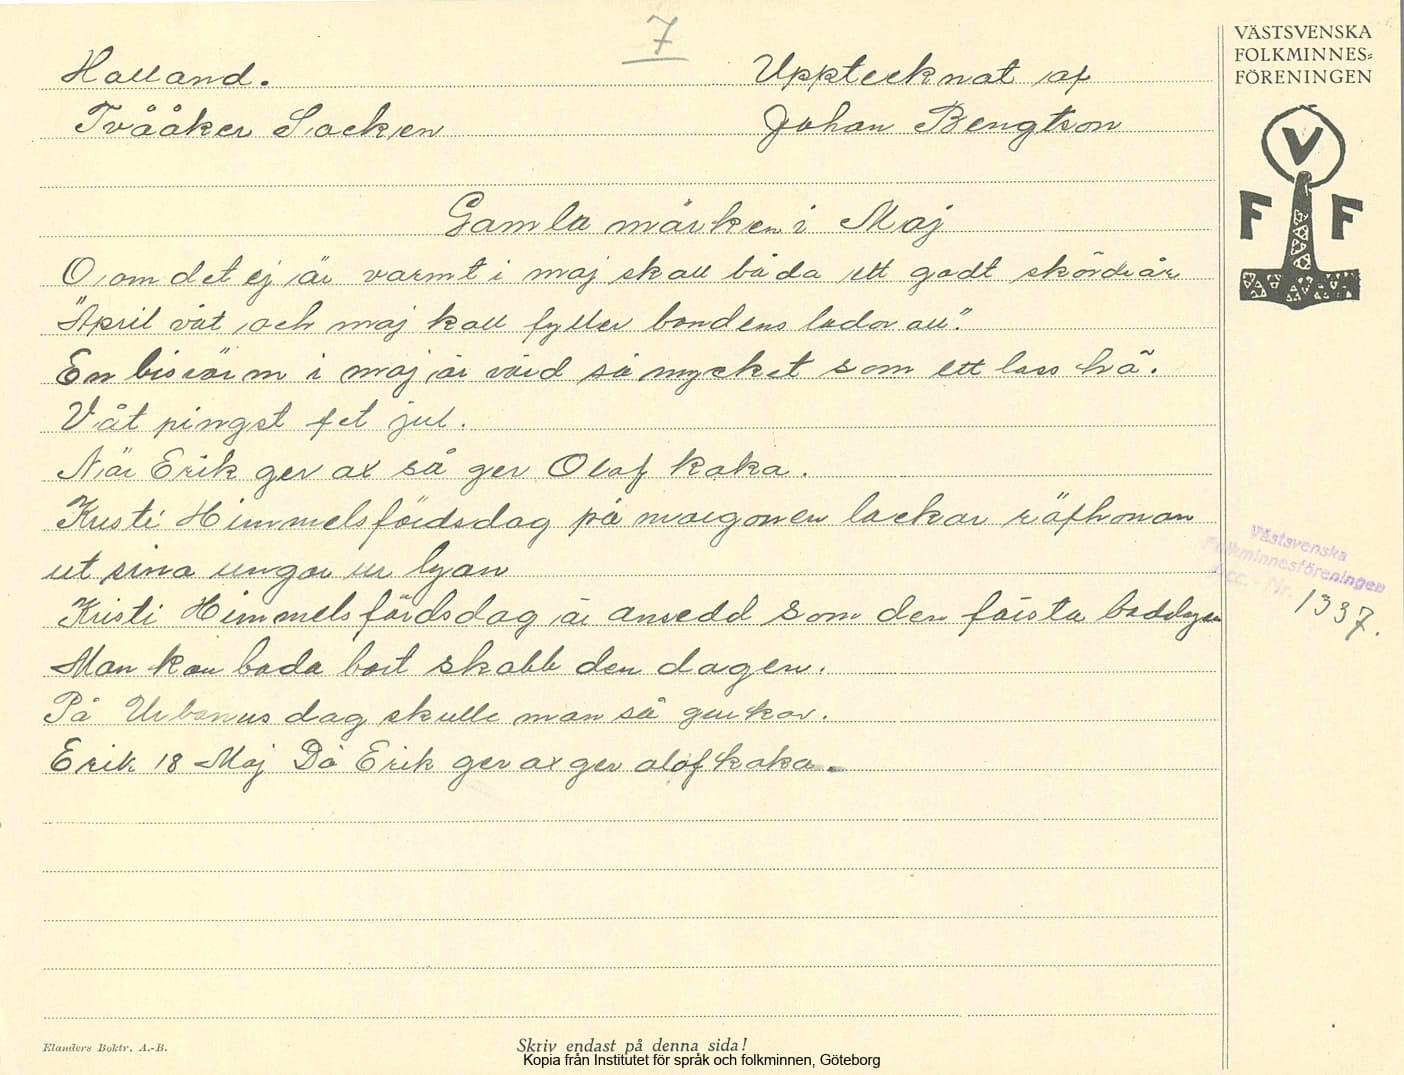 7
Halland.
Tvååker Socken
Upptecknat af
Johan Bengtson
VÄSTSVENSKA
FOLKMINNES=
FÖRENINGEN
V
F F
Gamla märken i Maj
O, om det ej är varmt i maj skall båda ett godt skördeår
"April våt och maj kall fyller bondens lador all".
En bisvärm i maj är värd så mycket som ett lass hö.
Våt pingst fet jul.
När Erik ger ax så ger Olof kaka.
Kristi Himmelsfärdsdag på morgonen lockar räfhonan
ut sina ungar ur lyan
Kristi Himmelsfärdsdag är ansedd som den första
Man kan bada bort skabb den dagen.
På Urbanus dag skulle man så gurkor.
Erik 18 Maj Då Erik ger ax ger olof kaka.
Västsvenska
Folkminnesföreningen
Acc. - Nr. 1337.
Elanders Boktr. A.-B.
Skriv endast på denna sida!
Kopia från Institutet för språk och folkminnen, Göteborg